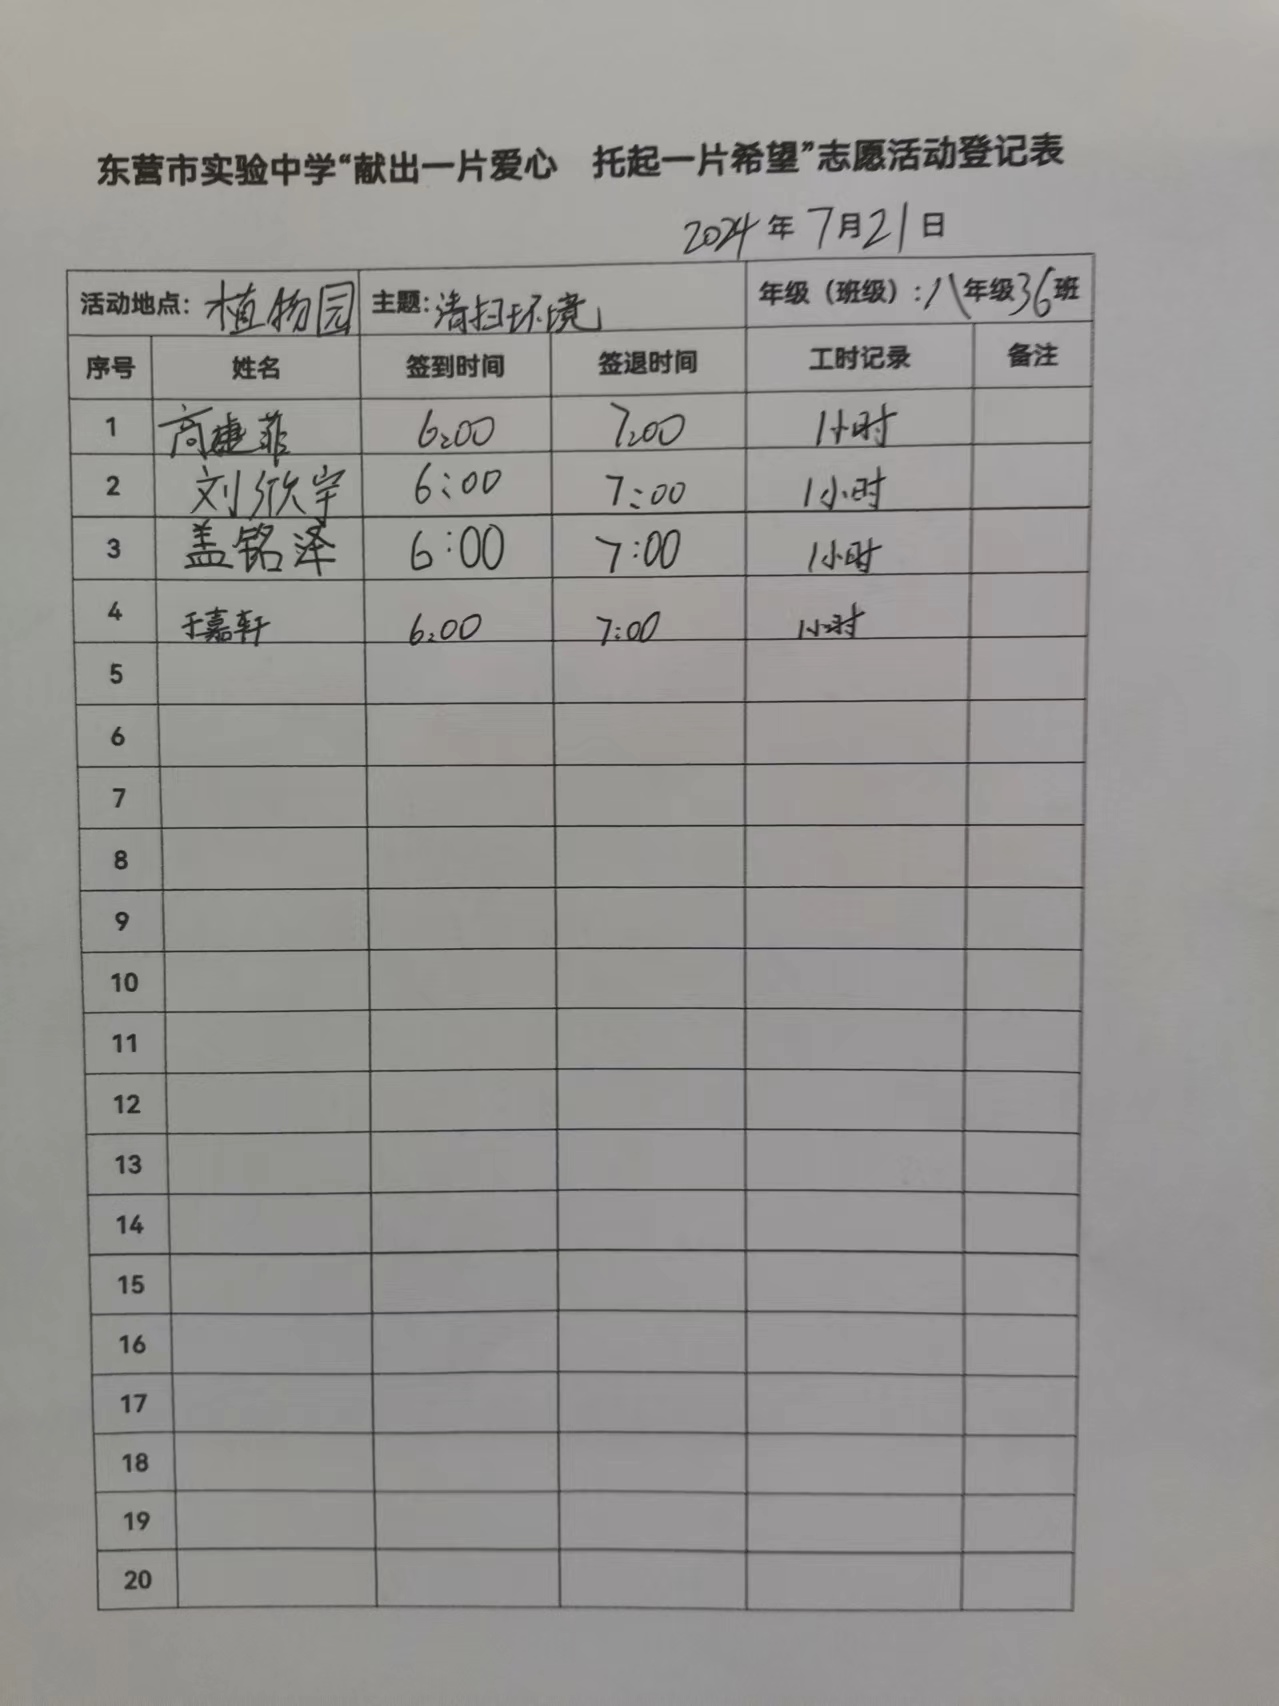 东营市实验中学“献出一片爱心 托起一片希望”志愿活动登记表
2024年7月21日
活动地点：植物园 主题：清扫环境 年级（班级）：八年级36班
序号 姓名 签到时间 签退时间 工时记录 备注
1 高婕菲 6:00 7:00 1小时
2 刘欣宇 6:00 7:00 1小时
3 盖铭泽 6:00 7:00 1小时
4 于嘉轩 6:00 7:00 1小时
5
6
7
8
9
10
11
12
13
14
15
16
17
18
19
20